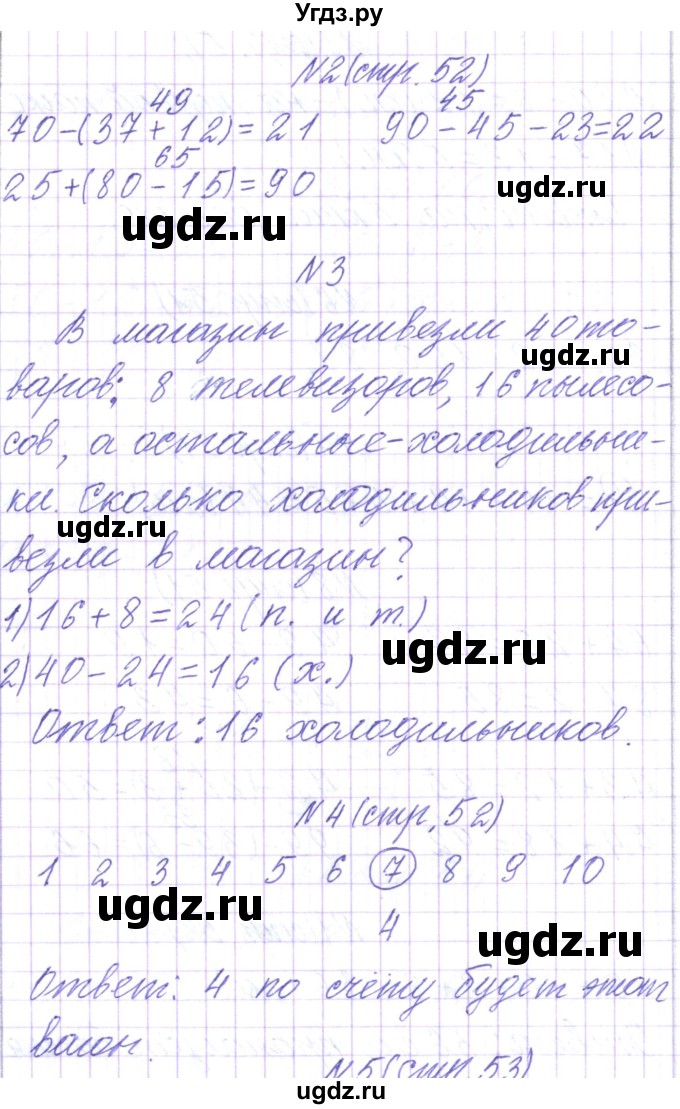 Угдз.ру
N2(стр. 52)
49 45
70-(37+12)=21 90-45-23=22
65
25+(80-15)=90
ugdz.ru
ugdz.ru
N3
В магазин привезли 40 то-
ugdz.ru
варов: 8 телевизоров, 16 пылесо-
сов, а остальные-холодильни-
ки. Сколько холодильников при-
ugdz.ru
везли в магазин?
1) 16+8=24 (п. и т.)
ugdz.ru
2) 40-24=16 (х.)
Ответ: 16 холодильников.
N4(стр. 52)
1 2 3 4 5 6 7 8 9 10
ugdz.ru
4
ugdz.ru
Ответ: 4 по счёту будет этот
вагон.
N5(стр. 53)
ugdz.ru